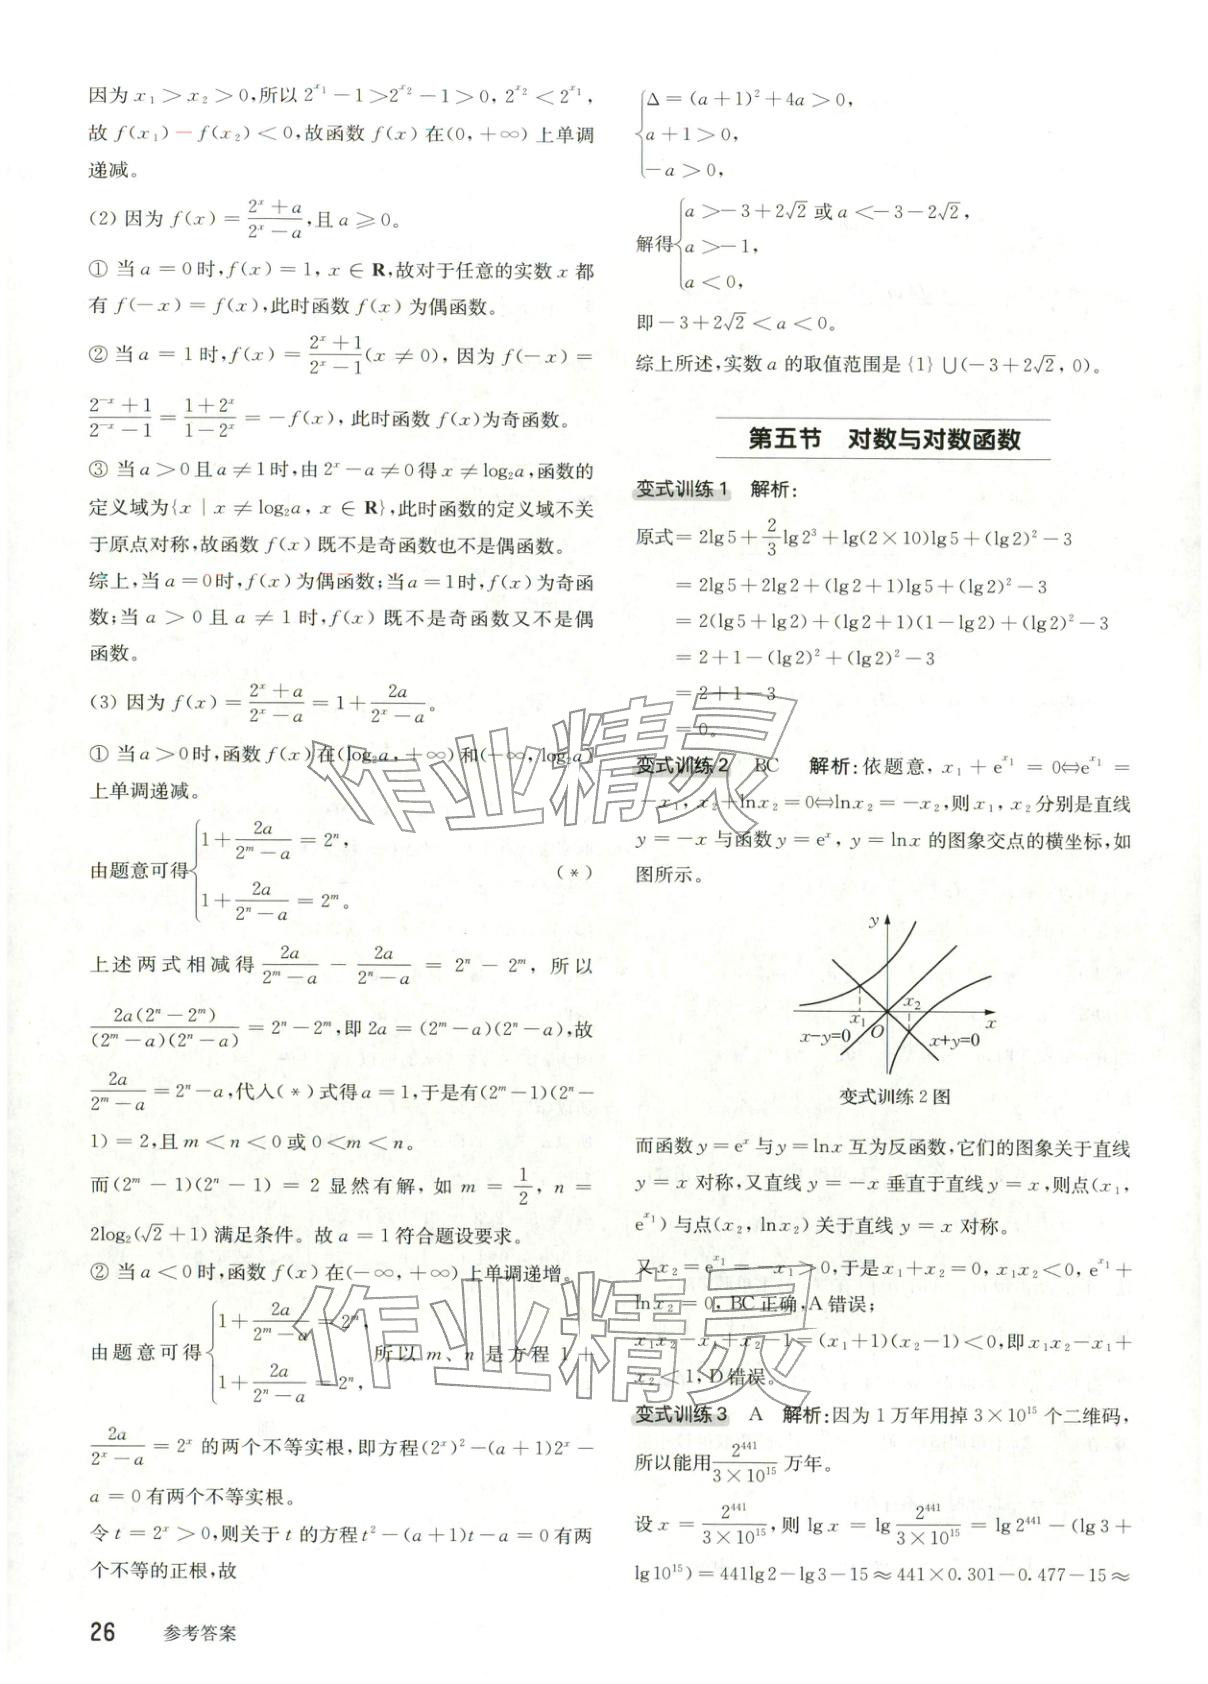 因为 x₁＞x₂＞0,所以 2^{x₁}－1＞2^{x₂}－1＞0, 2^{x₂}＜2^{x₁},
故 f(x₁)－f(x₂)＜0,故函数 f(x) 在(0,＋∞) 上单调
递减。
(2) 因为 f(x)＝(2^x＋a)/(2^x－a),且 a≥0。
① 当 a＝0时,f(x)＝1, x∈R,故对于任意的实数 x 都
有 f(－x)＝f(x),此时函数 f(x) 为偶函数。
② 当 a＝1时,f(x)＝(2^x＋1)/(2^x－1)(x≠0), 因为 f(－x)＝
(2^{－x}＋1)/(2^{－x}－1)＝(1＋2^x)/(1－2^x)＝－f(x), 此时函数 f(x)为奇函数。
③ 当a＞0且a≠1时,由2^x－a≠0得x≠log₂a,函数的
定义域为{x｜x≠log₂a, x∈R},此时函数的定义域不关
于原点对称,故函数 f(x) 既不是奇函数也不是偶函数。
综上,当 a＝0时,f(x)为偶函数;当a＝1时,f(x)为奇函
数;当 a＞0 且 a≠1 时,f(x) 既不是奇函数又不是偶
函数。
(3) 因为 f(x)＝(2^x＋a)/(2^x－a)＝1＋2a/(2^x－a)。
① 当a＞0时,函数 f(x)在(log₂a,＋∞)和(－∞,log₂a)
上单调递减。
由题意可得{1＋2a/(2^m－a)＝2^n,
1＋2a/(2^n－a)＝2^m。 (*)
上述两式相减得 2a/(2^m－a)－2a/(2^n－a)＝2^n－2^m, 所以
2a(2^n－2^m)/((2^m－a)(2^n－a))＝2^n－2^m,即 2a＝(2^m－a)(2^n－a),故
2a/(2^m－a)＝2^n－a,代入(*)式得a＝1,于是有(2^m－1)(2^n－
1)＝2,且 m＜n＜0或0＜m＜n。
而(2^m－1)(2^n－1)＝2 显然有解, 如 m＝1/2, n＝
2log₂(√2＋1)满足条件。故a＝1符合题设要求。
② 当a＜0时,函数 f(x)在(－∞,＋∞)上单调递增。
由题意可得{1＋2a/(2^m－a)＝2^m,
1＋2a/(2^n－a)＝2^n, 所以 m、n 是方程 1＋
2a/(2^x－a)＝2^x 的两个不等实根,即方程(2^x)²－(a＋1)2^x－
a＝0有两个不等实根。
令t＝2^x＞0,则关于 t 的方程t²－(a＋1)t－a＝0有两
个不等的正根,故
{Δ＝(a＋1)²＋4a＞0,
a＋1＞0,
－a＞0,
解得{a＞－3＋2√2 或a＜－3－2√2,
a＞－1,
a＜0,
即－3＋2√2＜a＜0。
综上所述,实数 a 的取值范围是 {1}∪(－3＋2√2, 0)。
第五节 对数与对数函数
变式训练1 解析:
原式＝2lg5＋2/3lg2³＋lg(2×10)lg5＋(lg2)²－3
＝2lg5＋2lg2＋(lg2＋1)lg5＋(lg2)²－3
＝2(lg5＋lg2)＋(lg2＋1)(1－lg2)＋(lg2)²－3
＝2＋1－(lg2)²＋(lg2)²－3
＝2＋1－3
＝0。
变式训练2 BC 解析:依题意, x₁＋e^{x₁}＝0⇔e^{x₁}＝
－x₁, x₂＋lnx₂＝0⇔lnx₂＝－x₂,则x₁,x₂分别是直线
y＝－x 与函数y＝e^x, y＝lnx 的图象交点的横坐标,如
图所示。
y
x₂
x₁
O
x
x－y=0
x+y=0
变式训练2图
而函数y＝e^x与y＝lnx 互为反函数,它们的图象关于直线
y＝x 对称,又直线y＝－x 垂直于直线y＝x,则点(x₁,
e^{x₁})与点(x₂, lnx₂)关于直线y＝x 对称。
又x₂＝e^{x₁}＝－x₁＞0,于是x₁＋x₂＝0, x₁x₂＜0, e^{x₁}＋
lnx₂＝0, BC正确,A错误;
x₁x₂－x₁＋x₂－1＝(x₁＋1)(x₂－1)＜0,即x₁x₂－x₁＋
x₂＜1,D错误。
变式训练3 A 解析:因为1万年用掉3×10¹⁵个二维码,
所以能用2⁴⁴¹/(3×10¹⁵)万年。
设 x＝2⁴⁴¹/(3×10¹⁵), 则 lgx＝lg 2⁴⁴¹/(3×10¹⁵)＝lg2⁴⁴¹－(lg3＋
lg10¹⁵)＝441lg2－lg3－15≈441×0.301－0.477－15≈
26 参考答案
作业精灵
作业精灵